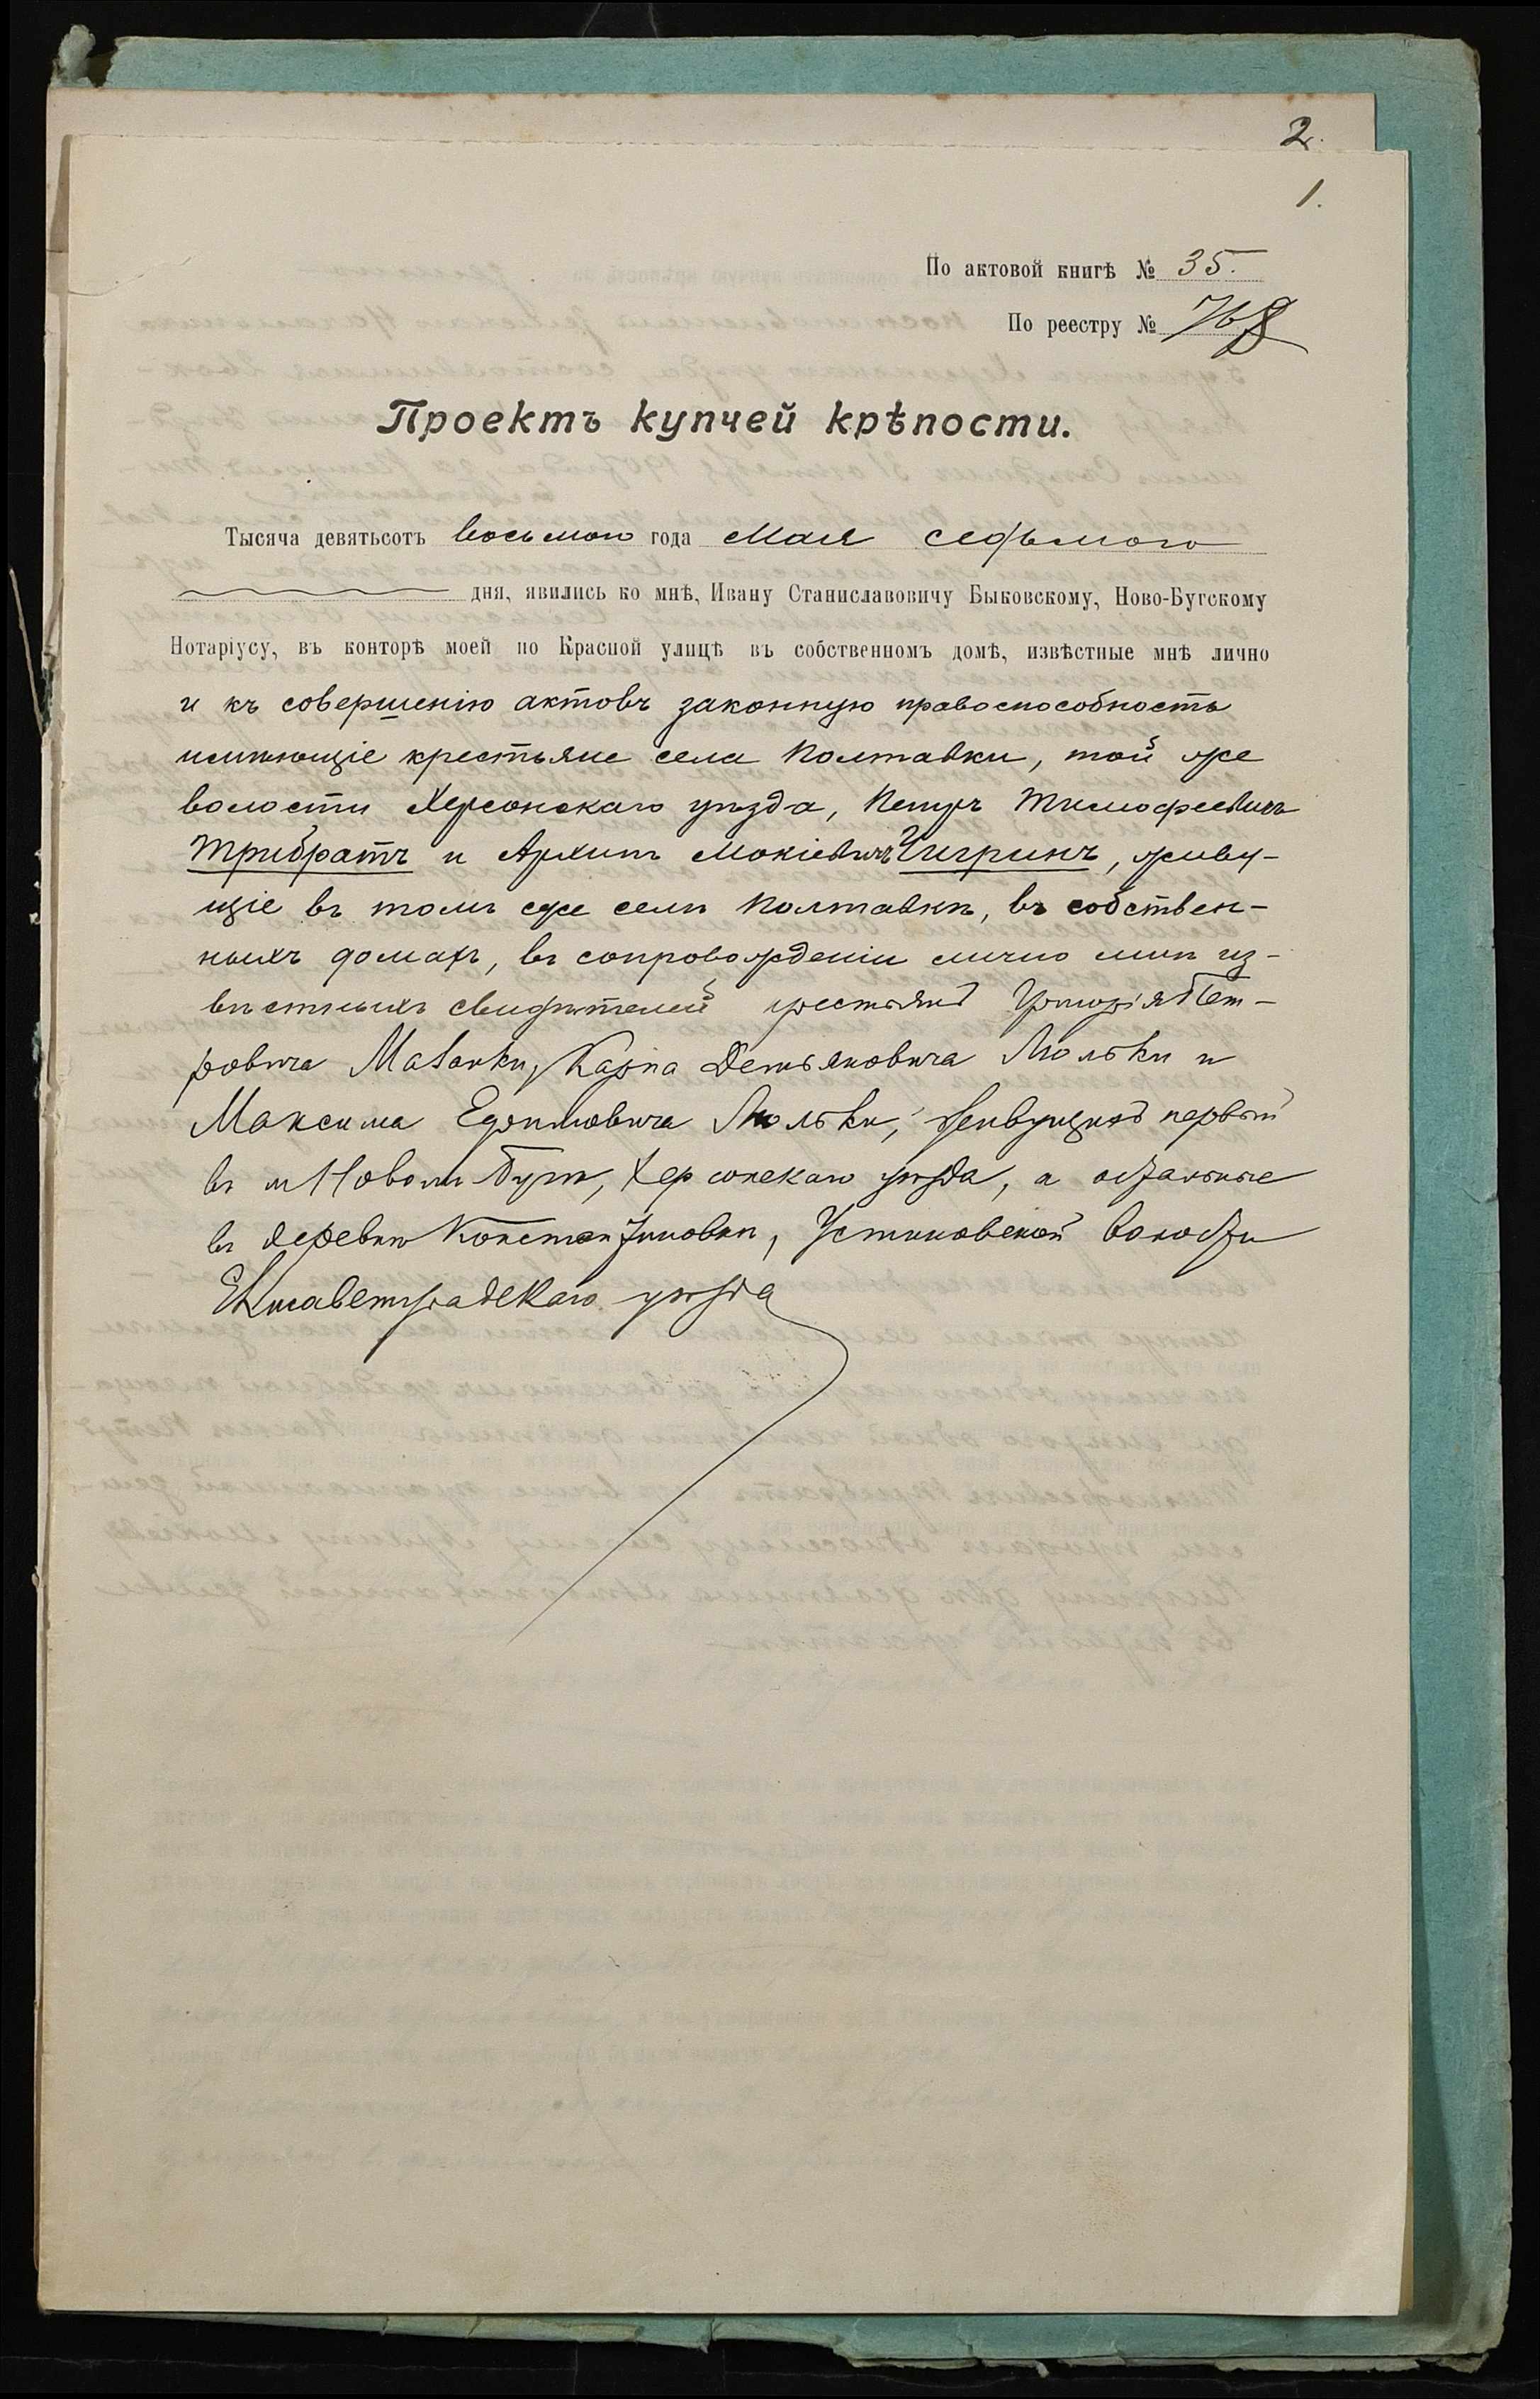 2.
1.
По актовой книгѣ № 35.
По реестру № 768
Проектъ купчей крѣпости.
Тысяча девятьсотъ восьмого года Мая седьмого
дня, явились ко мнѣ, Ивану Станиславовичу Быковскому, Ново-Бугскому
Нотаріусу, въ конторѣ моей по Красной улицѣ въ собственномъ домѣ, извѣстные мнѣ лично
и къ совершенію актовъ законную правоспособность
имѣющіе крестьяне села Полтавки, той же
волости Херсонскаго уѣзда, Петръ Тимофеевичъ
Трибратъ и Архипъ Мокіевичъ Чигринъ, живу-
щіе въ томъ же селѣ Полтавкѣ, въ собствен-
ныхъ домахъ, въ сопровожденіи лично мнѣ из-
вѣстныхъ свидѣтелей крестьянъ Григорія Пет-
ровича Мазанки, Карпа Демьяновича Люльки и
Максима Люльки, живущихъ первый
въ м Новомъ Бугѣ, Херсонскаго уѣзда, а остальные
въ деревнѣ Константиновкѣ, Устиновской волости
Елисаветградскаго уѣзда